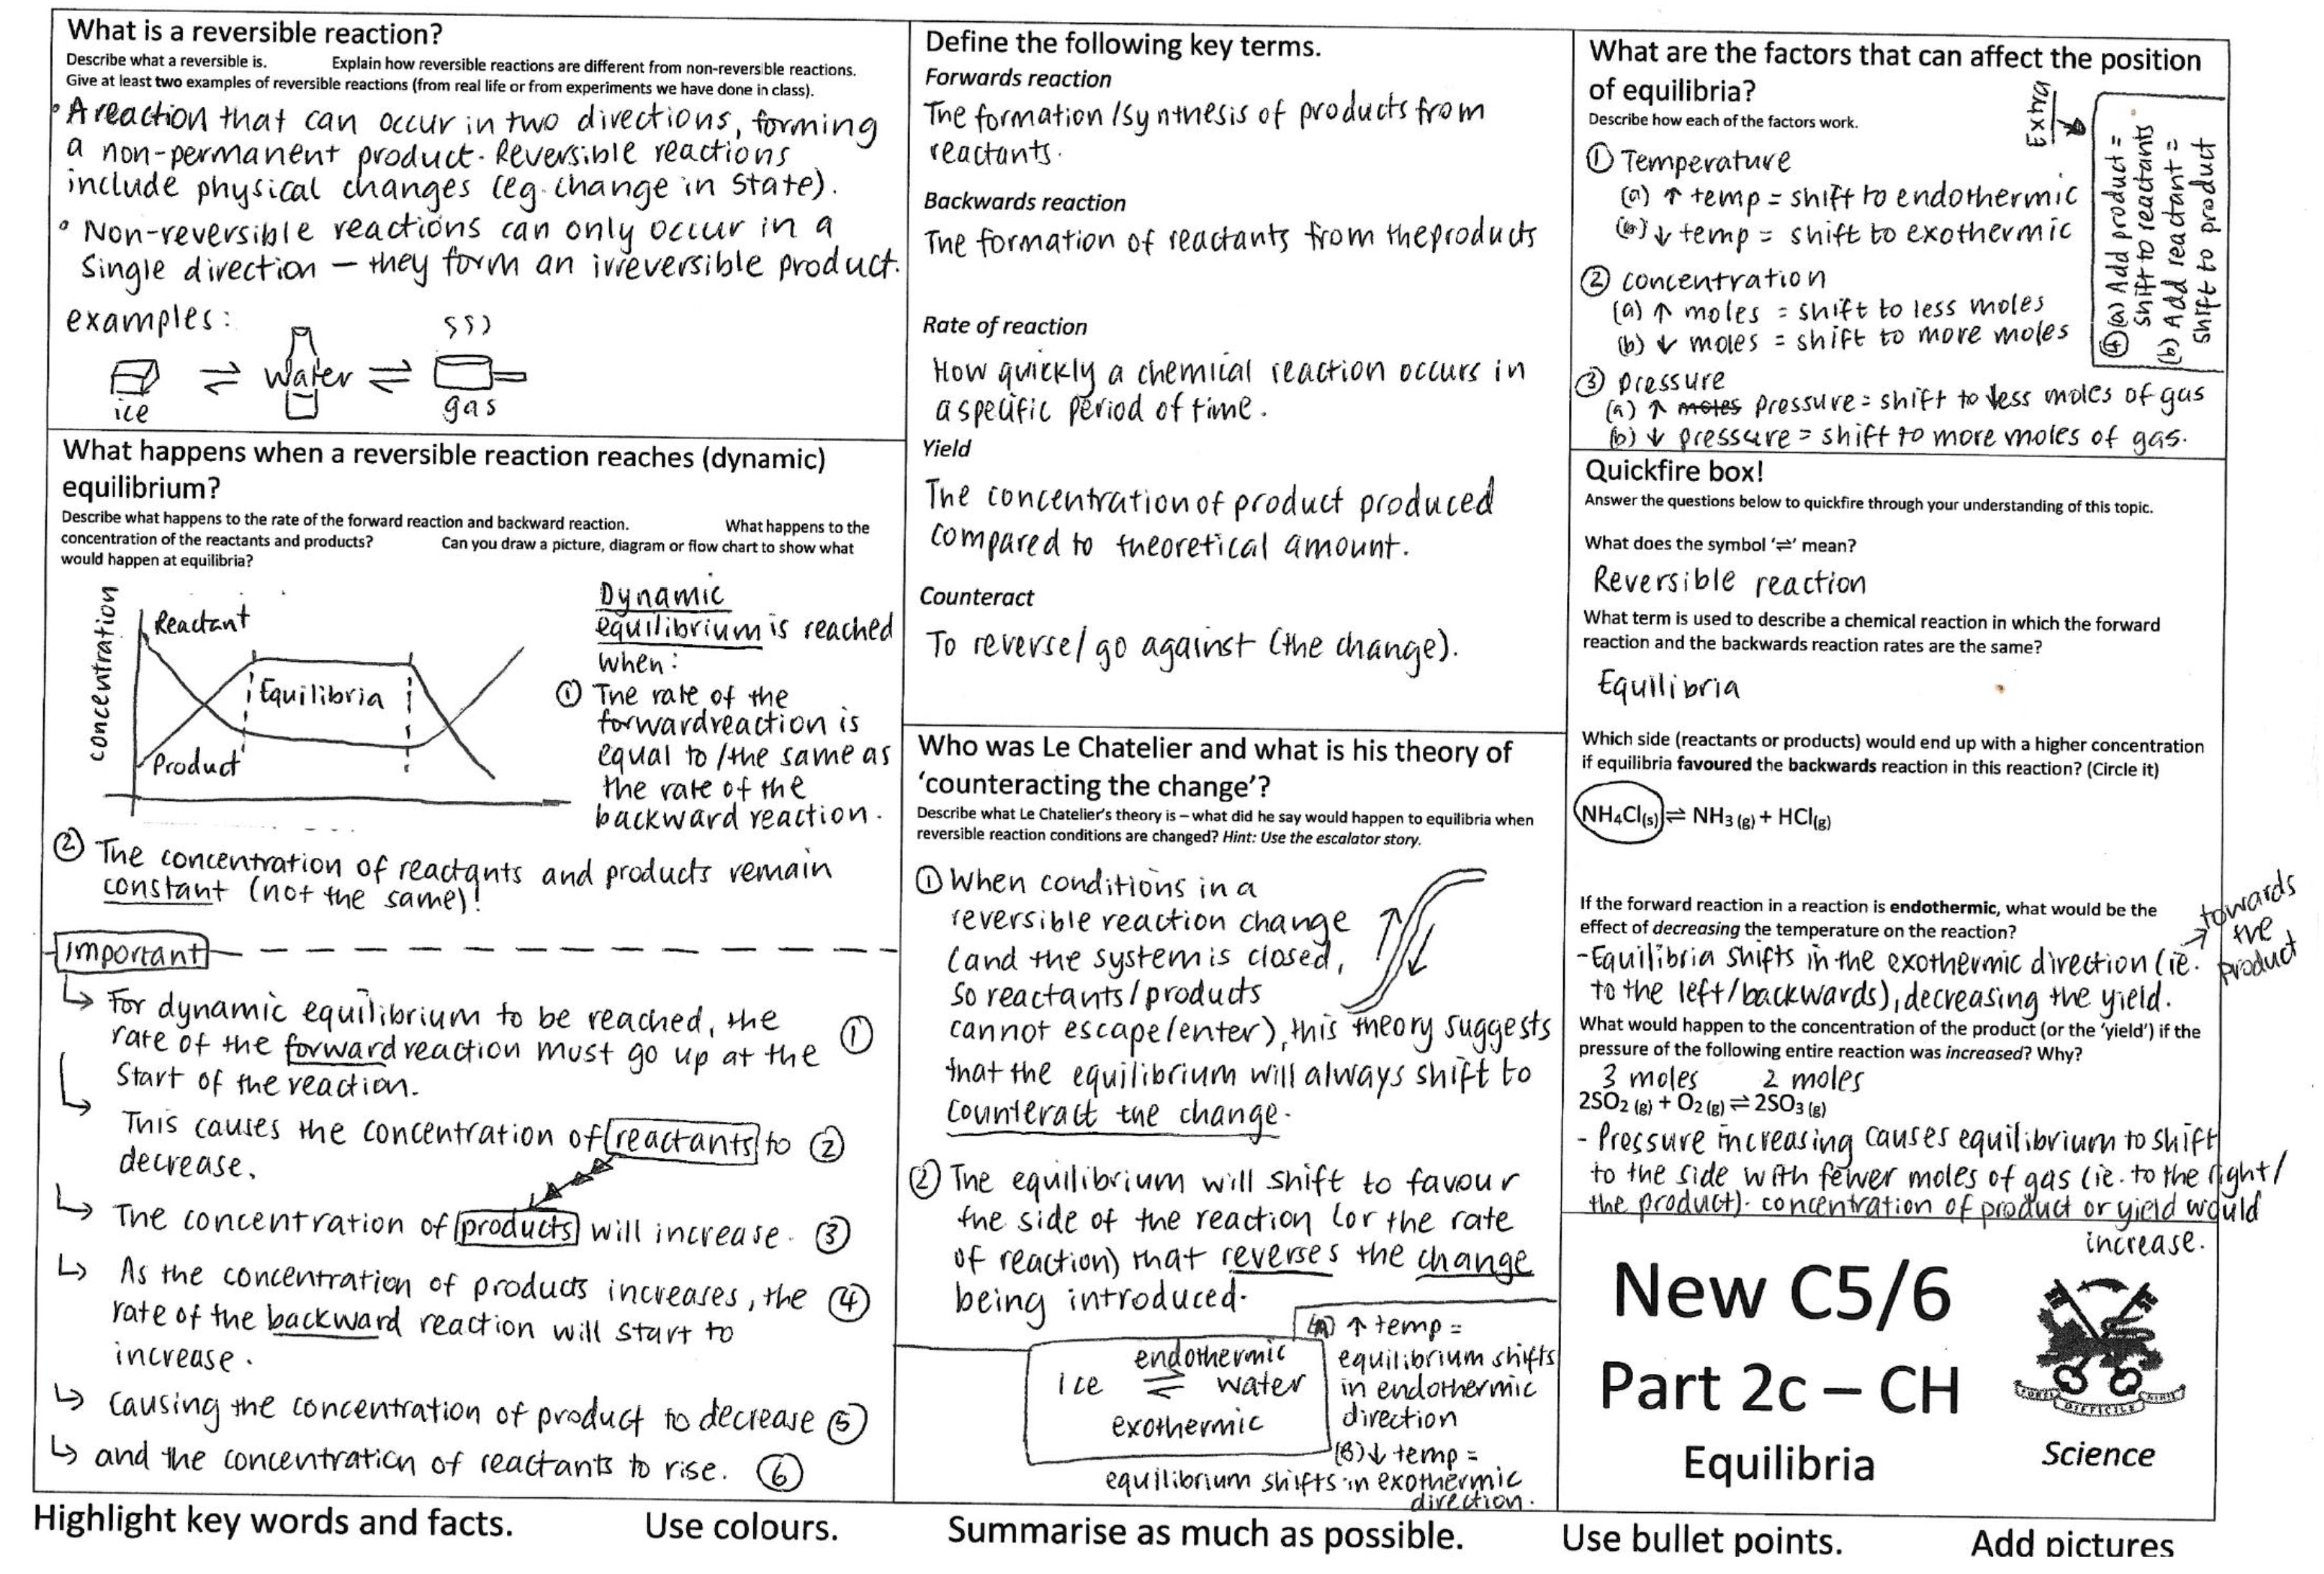 What is a reversible reaction?
Describe what a reversible is. Explain how reversible reactions are different from non-reversible reactions.
Give at least two examples of reversible reactions (from real life or from experiments we have done in class).
• A reaction that can occur in two directions, forming
a non-permanent product. Reversible reactions
include physical changes (eg. change in state).
• Non-reversible reactions can only occur in a
single direction – they form an irreversible product.
examples:
ice ⇌ water ⇌ gas
What happens when a reversible reaction reaches (dynamic)
equilibrium?
Describe what happens to the rate of the forward reaction and backward reaction. What happens to the
concentration of the reactants and products? Can you draw a picture, diagram or flow chart to show what
would happen at equilibria?
concentration
Reactant
Equilibria
Product
Dynamic
equilibrium is reached
when:
① The rate of the
forward reaction is
equal to / the same as
the rate of the
backward reaction.
② The concentration of reactants and products remain
constant (not the same)!
Important
↳ For dynamic equilibrium to be reached, the
rate of the forward reaction must go up at the ①
start of the reaction.
↳ This causes the concentration of reactants to ②
decrease.
↳ The concentration of products will increase. ③
↳ As the concentration of products increases, the ④
rate of the backward reaction will start to
increase.
↳ Causing the concentration of product to decrease ⑤
↳ and the concentration of reactants to rise. ⑥
Define the following key terms.
Forwards reaction
The formation /synthesis of products from
reactants.
Backwards reaction
The formation of reactants from the products
Rate of reaction
How quickly a chemical reaction occurs in
a specific period of time.
Yield
The concentration of product produced
compared to theoretical amount.
Counteract
To reverse/ go against (the change).
Who was Le Chatelier and what is his theory of
‘counteracting the change’?
Describe what Le Chatelier’s theory is – what did he say would happen to equilibria when
reversible reaction conditions are changed? Hint: Use the escalator story.
① When conditions in a
reversible reaction change
(and the system is closed,
so reactants/products
cannot escape/enter), this theory suggests
that the equilibrium will always shift to
counteract the change.
② The equilibrium will shift to favour
the side of the reaction (or the rate
of reaction) that reverses the change
being introduced.
endothermic
ice ⇌ water
exothermic
(A) ↑ temp =
equilibrium shifts
in endothermic
direction
(B) ↓ temp =
equilibrium shifts in exothermic
direction.
What are the factors that can affect the position
of equilibria?
Describe how each of the factors work.
① Temperature
(a) ↑ temp = shift to endothermic
(b) ↓ temp = shift to exothermic
② concentration
(a) ↑ moles = shift to less moles
(b) ↓ moles = shift to more moles
③ pressure
(a) ↑ moles pressure = shift to less moles of gas
(b) ↓ pressure = shift to more moles of gas.
Extra
④ (a) Add product =
shift to reactants
(b) Add reactant =
shift to product
Quickfire box!
Answer the questions below to quickfire through your understanding of this topic.
What does the symbol ‘⇌’ mean?
Reversible reaction
What term is used to describe a chemical reaction in which the forward
reaction and the backwards reaction rates are the same?
Equilibria
Which side (reactants or products) would end up with a higher concentration
if equilibria favoured the backwards reaction in this reaction? (Circle it)
NH4Cl(s) ⇌ NH3 (g) + HCl(g)
If the forward reaction in a reaction is endothermic, what would be the
effect of decreasing the temperature on the reaction?
- Equilibria shifts in the exothermic direction (ie.
to the left/backwards), decreasing the yield.
→ towards
the
product
What would happen to the concentration of the product (or the ‘yield’) if the
pressure of the following entire reaction was increased? Why?
3 moles 2 moles
2SO2 (g) + O2 (g) ⇌ 2SO3 (g)
- Pressure increasing causes equilibrium to shift
to the side with fewer moles of gas (ie. to the right/
the product). concentration of product or yield would
increase.
New C5/6
Part 2c – CH
Equilibria
DIFFICILE
Science
Highlight key words and facts. Use colours. Summarise as much as possible. Use bullet points. Add pictures